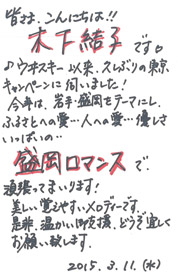 皆さま、こんにちは!!
木下結子です。
♪ウヰスキー以来、久しぶりの東京
キャンペーンに伺いました!
今年は、岩手・盛岡をテーマにし、
ふるさとへの愛…人への愛…優しさ
いっぱいの…
盛岡ロマンスで、
頑張ってまいります!
美しい覚えやすいメロディーです…
是非、温かい御支援、どうぞ宜しく
お願い致します。
2015.3.11.(水)